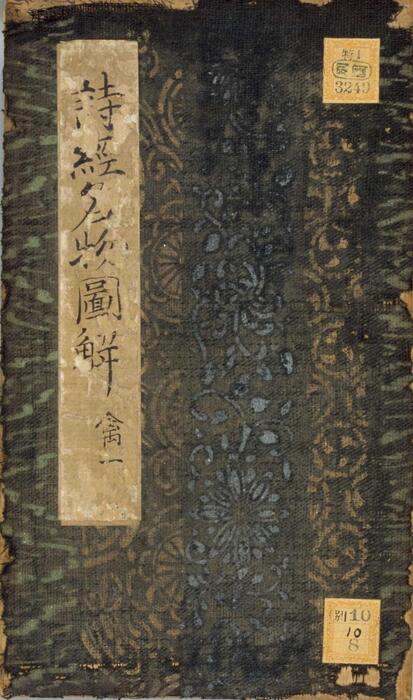 詩經名物圖解 禽一
特1
3249
別10
10
8